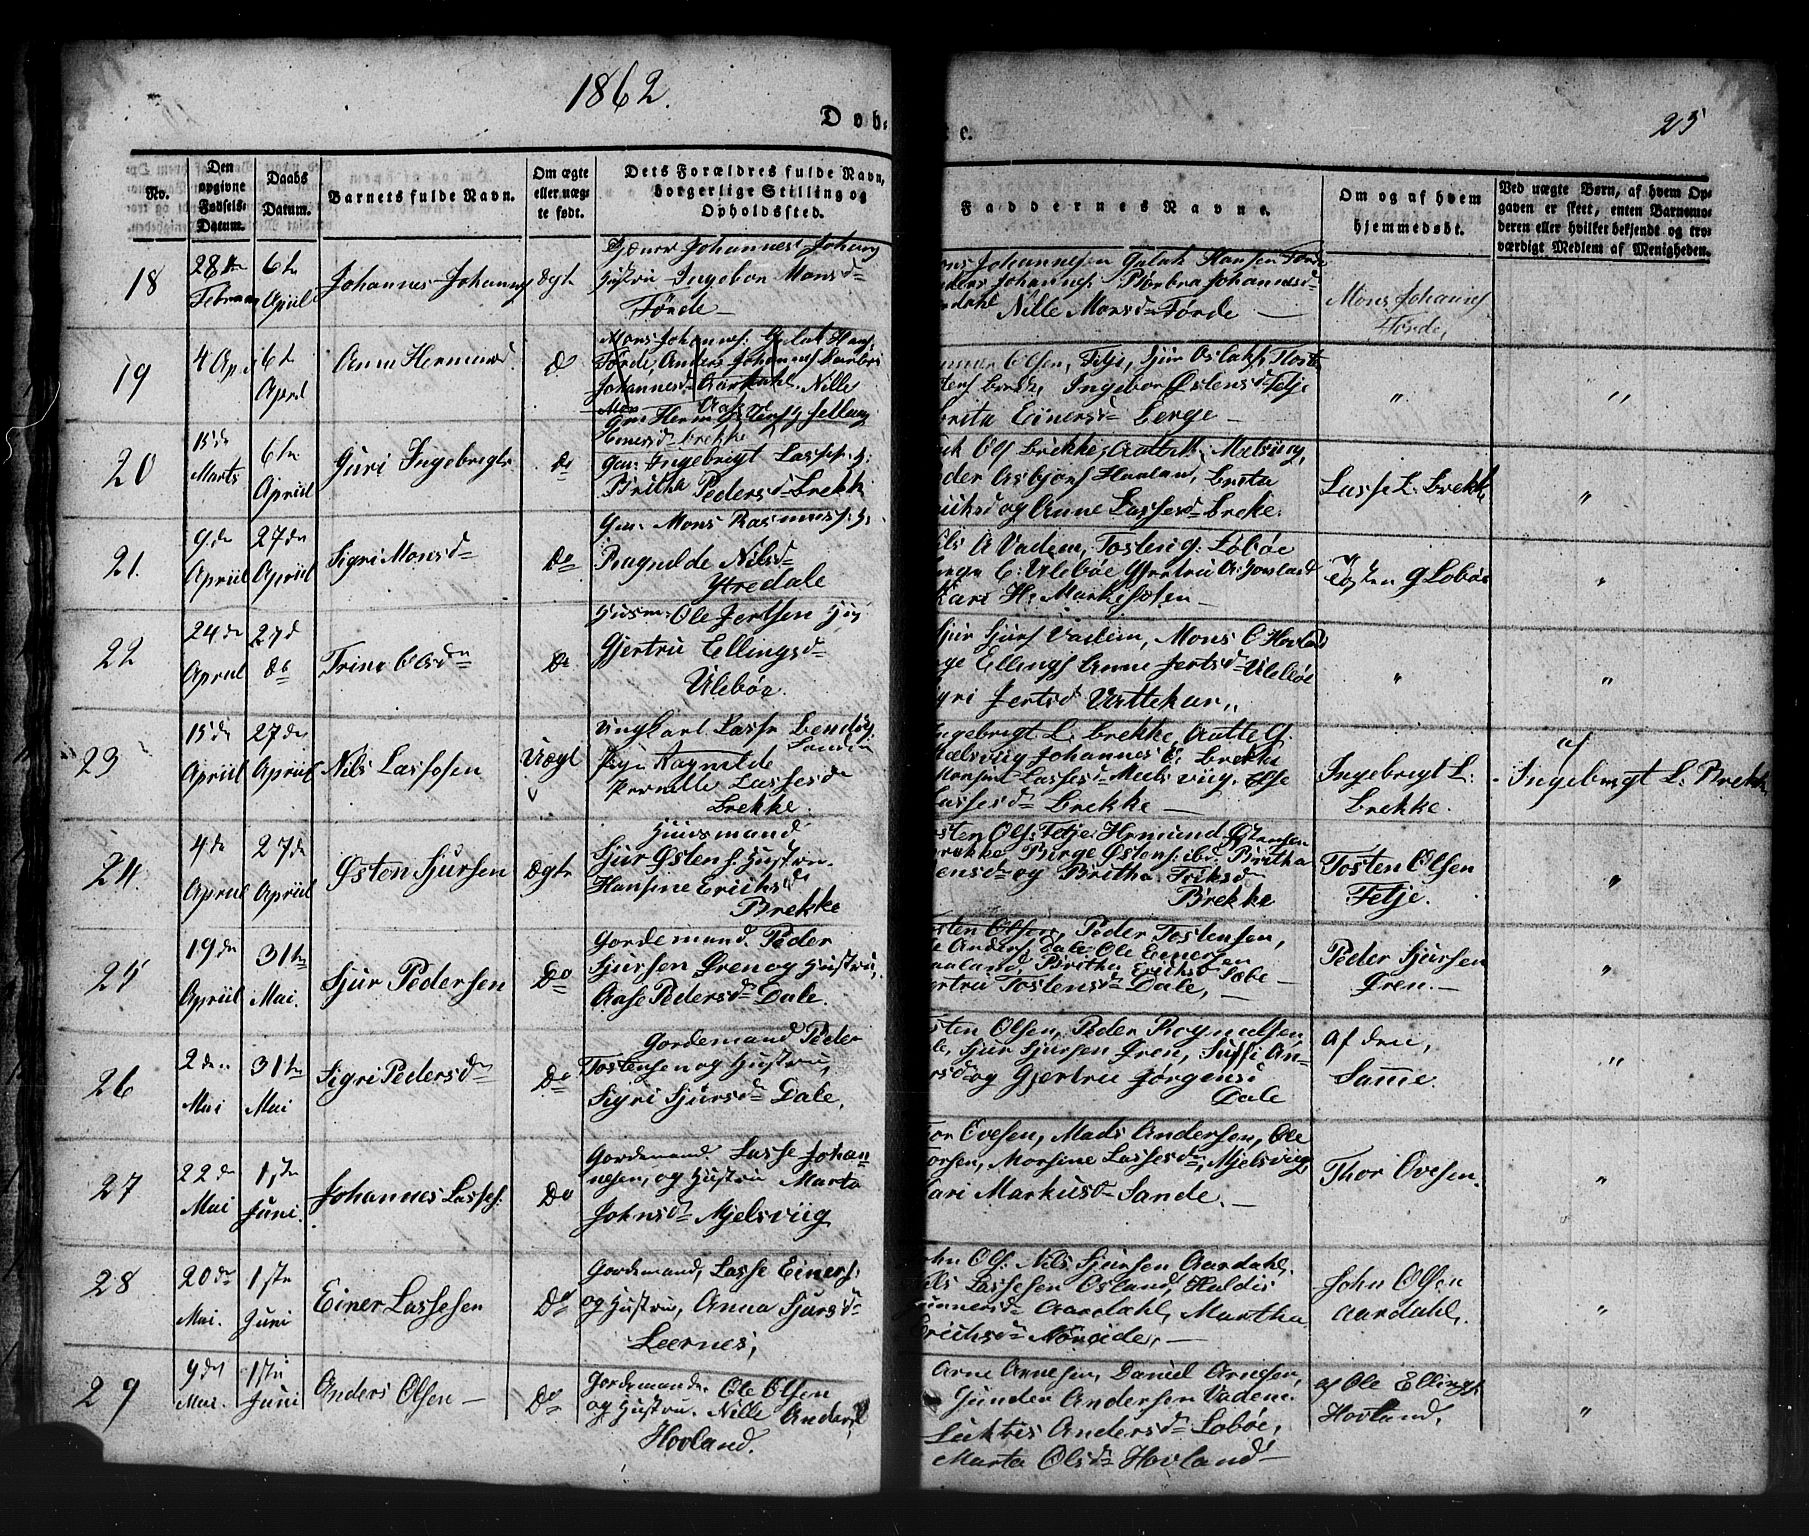 1862.
Døb=
e.
25
No.
Den
opgivne
Fødsels-
Datum.
Daabs
Datum.
Barnets fulde Navn.
Om ægte
eller uæg-
te født.
Dets Forældres fulde Navn,
borgerlige Stilling og
Opholdssted.
Faddernes Navne.
Om og af hvem
hjemmedøbt.
Ved uægte Børn, af hvem Op-
gaven er skeet, enten Barnemo-
deren eller hvilket bekjendt og tro-
værdigt Medlem af Menigheden.
18
28de
Februar
6te
April
Johannes Johannes
Ægte
Johannes Johans
Hustru Ingebor Monsd
Førde
Johannesen Hansen Førde
Johannes Johannesd
Nille Monsd Førde
Mons Johannes
Førde,
19
4 Apr
6te
April
Anna Hermunsd
Do
Mons Johannes
Førde, Anders Johannes
Johannesd Aardahl, Nille
Brekke
Olsen, Fetje, Sjur Oslaks
Brekke, Ingebor Østensd Fetje
Brita Einersd Berge
"
"
20
15de
Marts
6te
April
Guri Ingebrigts
Do
Gm: Ingebrigt Lasses. H:
Britha Pedersd Brekke
Ols Brekke,
Asbjørns Brita
og Anne Lassesd Breke.
Lasse L. Brekke
"
21.
9de
April
27de
April
Sigri Monsd
Do
Gm: Mons Rasmuss: H:
Ragnilde Nilsd
Ytredale
A Vadem, Tosten G: Løbøe
E: Uleböe Gjertru A:
Kari H:
Tosten G Løbøe
"
22
24de
April
27de
do
Trina Olsd
Do
Husm: Ole Jertsen Hu
Gjertru Ellingsd
Ulebøe.
Sjurs Vadem, Mons O Hovland
Ellings Anne Jertsd Ulebøe
Jertsd Vattekar,,
"
"
23
15de
April
27de
April
Nils Lassesen
Uægt
Ungkarl Lasse
Pige Ragnilde
Pernille Lassesd
Brekke.
Ingebrigt L. Brekke, Aatte G.
Mælsviig Johannes E. Brekke
Lassesd Melsviig, Else
Lassesd Brekke
Ingebrigt L:
Brekke.
af
Ingebrigt L: Brekke
24.
4de
April
27de
April
Østen Sjursen
Ægte
Huusmand
Sjur Østens, Hustru
Hansine Erichsd
Brekke
Tosten Ols: Fetje, Hermund Østensen
Brekke Birge Østens: ibd. Britha
og Britha Eriksd
Brekke
Tosten Olsen
Fetje.
"
25
19de
April
31te
Mai
Sjur Pedersen
Do
Gordemand. Peder
Sjursen Øren og Hustru,
Aase Pedersd Dale.
Tosten Olsen, Peder Tostensen,
Anders Dale, Ole Einersen
Britha Erichsd Sæbe
Gjertru Tostensd Dale,
Peder Sjursen
Øren.
"
26
2den
Mai
31te
Mai
Sigri Pedersd
Do
Gordemand Peder
Tostensen og Hustru,
Sigri Sjursd Dale,
Tosten Olsen, Peder Rognalsen,
Sjur Sjursen Øren, Siffi An-
dersd og Gjertru Jørgens
Dale
af den
Samme.
"
27
22de
Mai
1ste
Juni.
Johannes Lasses:
Do
Gordemand. Lasse Johan-
nesen, og Hustru Marta
Johnsd Mjelsviig
Thor Ovesen, Mads Andersen, Ole
Thorsen, Morsine Lassesd, Mjelsviig
Kari Markusd Sande.
Thor Ovesen.
"
28
20de
Mai.
1ste
Juni
Einer Lassesen
Do
Gordemand, Lasse Einers:
og Hustru, Anna Sjursd
Leernes,
John Ols: Nils Sjursen Aardahl,
Nils Lassesen Osland, Huldis
Gunnersd Aardahl, Martha
Erichsd
John Olsen
Aardahl,
"
29
9de
Mai.
1ste
Juni
Anders Olsen
Do
Gordemand. Ole Olsen
og Hustru. Nille Andersd
Hovland.
Arne Arnesen, Daniel Arnesen,
Gunder Andersen Vadem.
Andersd Løbøe,
Marta Olsd Hovland
af Ole Ellings
Hovland,
"